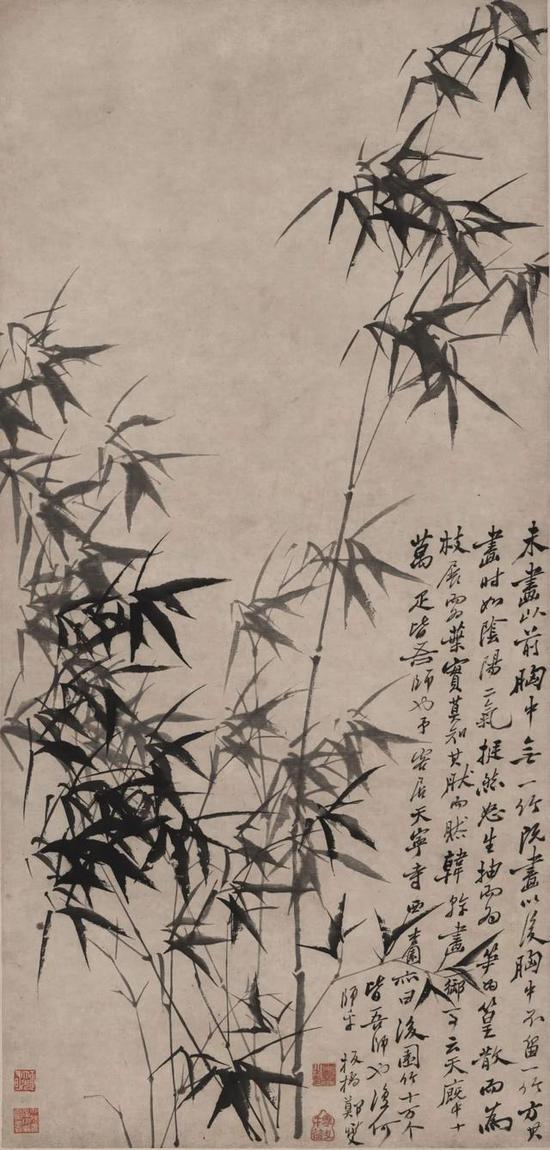 未畫以前胸中無一竹既畫以後胸中不留一竹方其
畫時如陰陽二氣挺然怒生抽而為笋為篁散而為
枝展而為葉實莫知其然而然韓幹畫御馬云天廄中十
萬疋皆吾師也予客居天寧寺西杏園亦曰後園竹十萬个
皆吾師也復何
師乎板橋鄭燮